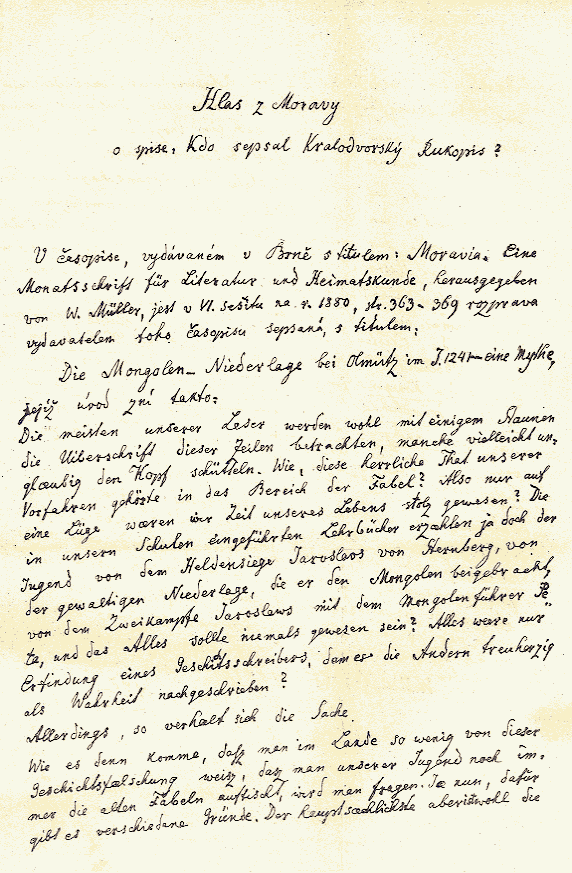 Hlas z Moravy
o spise: Kdo sepsal Kralodvorský Rukopis?
V časopise, vydávaném v Brně s titulem: Moravia. Eine
Monatsschrift für Literatur und Heimatskunde, herausgegeben
von W. Müller, jest v VI. sešitu na r. 1880, str. 363-369 rozprava
vydavatelem toho časopisu sepsaná, s titulem:
Die Mongolen-Niederlage bei Olmütz im J. 1241 - eine Mythe,
jejíž úvod zní takto:
Die meisten unserer Leser werden wohl mit einigem Staunen
die Uiberschrift dieser Zeilen betrachten, manche vielleicht un-
glæubig den Kopf schütteln. Wie, diese herrliche That unserer
Vorfahren gehörte in das Bereich der Fabel? Also nur auf
eine Lüge wæren wir Zeit unseres Lebens stolz gewesen? Die
in unsern Schulen eingeführten Lehrbücher erzæhlen ja doch der
Jugend von dem Heldensiege Jaroslaws von Sternberg, von
der gewaltigen Niederlage, die er den Mongolen beigebracht,
von dem Zweikampfe Jaroslaws mit dem Mongolenführer Pe-
ta, und das Alles sollte niemals gewesen sein? Alles wære nur
Erfindung eines Geschitsschreibers, dem es die Andern treuherzig
als Wahrheit nachgeschrieben?
Allerdings, so verhælt sich die Sache.
Wie es denn komme, dasz man im Lande so wenig von dieser
Geschichtsfælschung weisz, dasz man unserer Jugend noch im-
mer die alten Fabeln auftischt, wird man fragen. Je nun, dafür
gibt es verschiedene Gründe. Der hauptsæchlichste aber ist wohl die